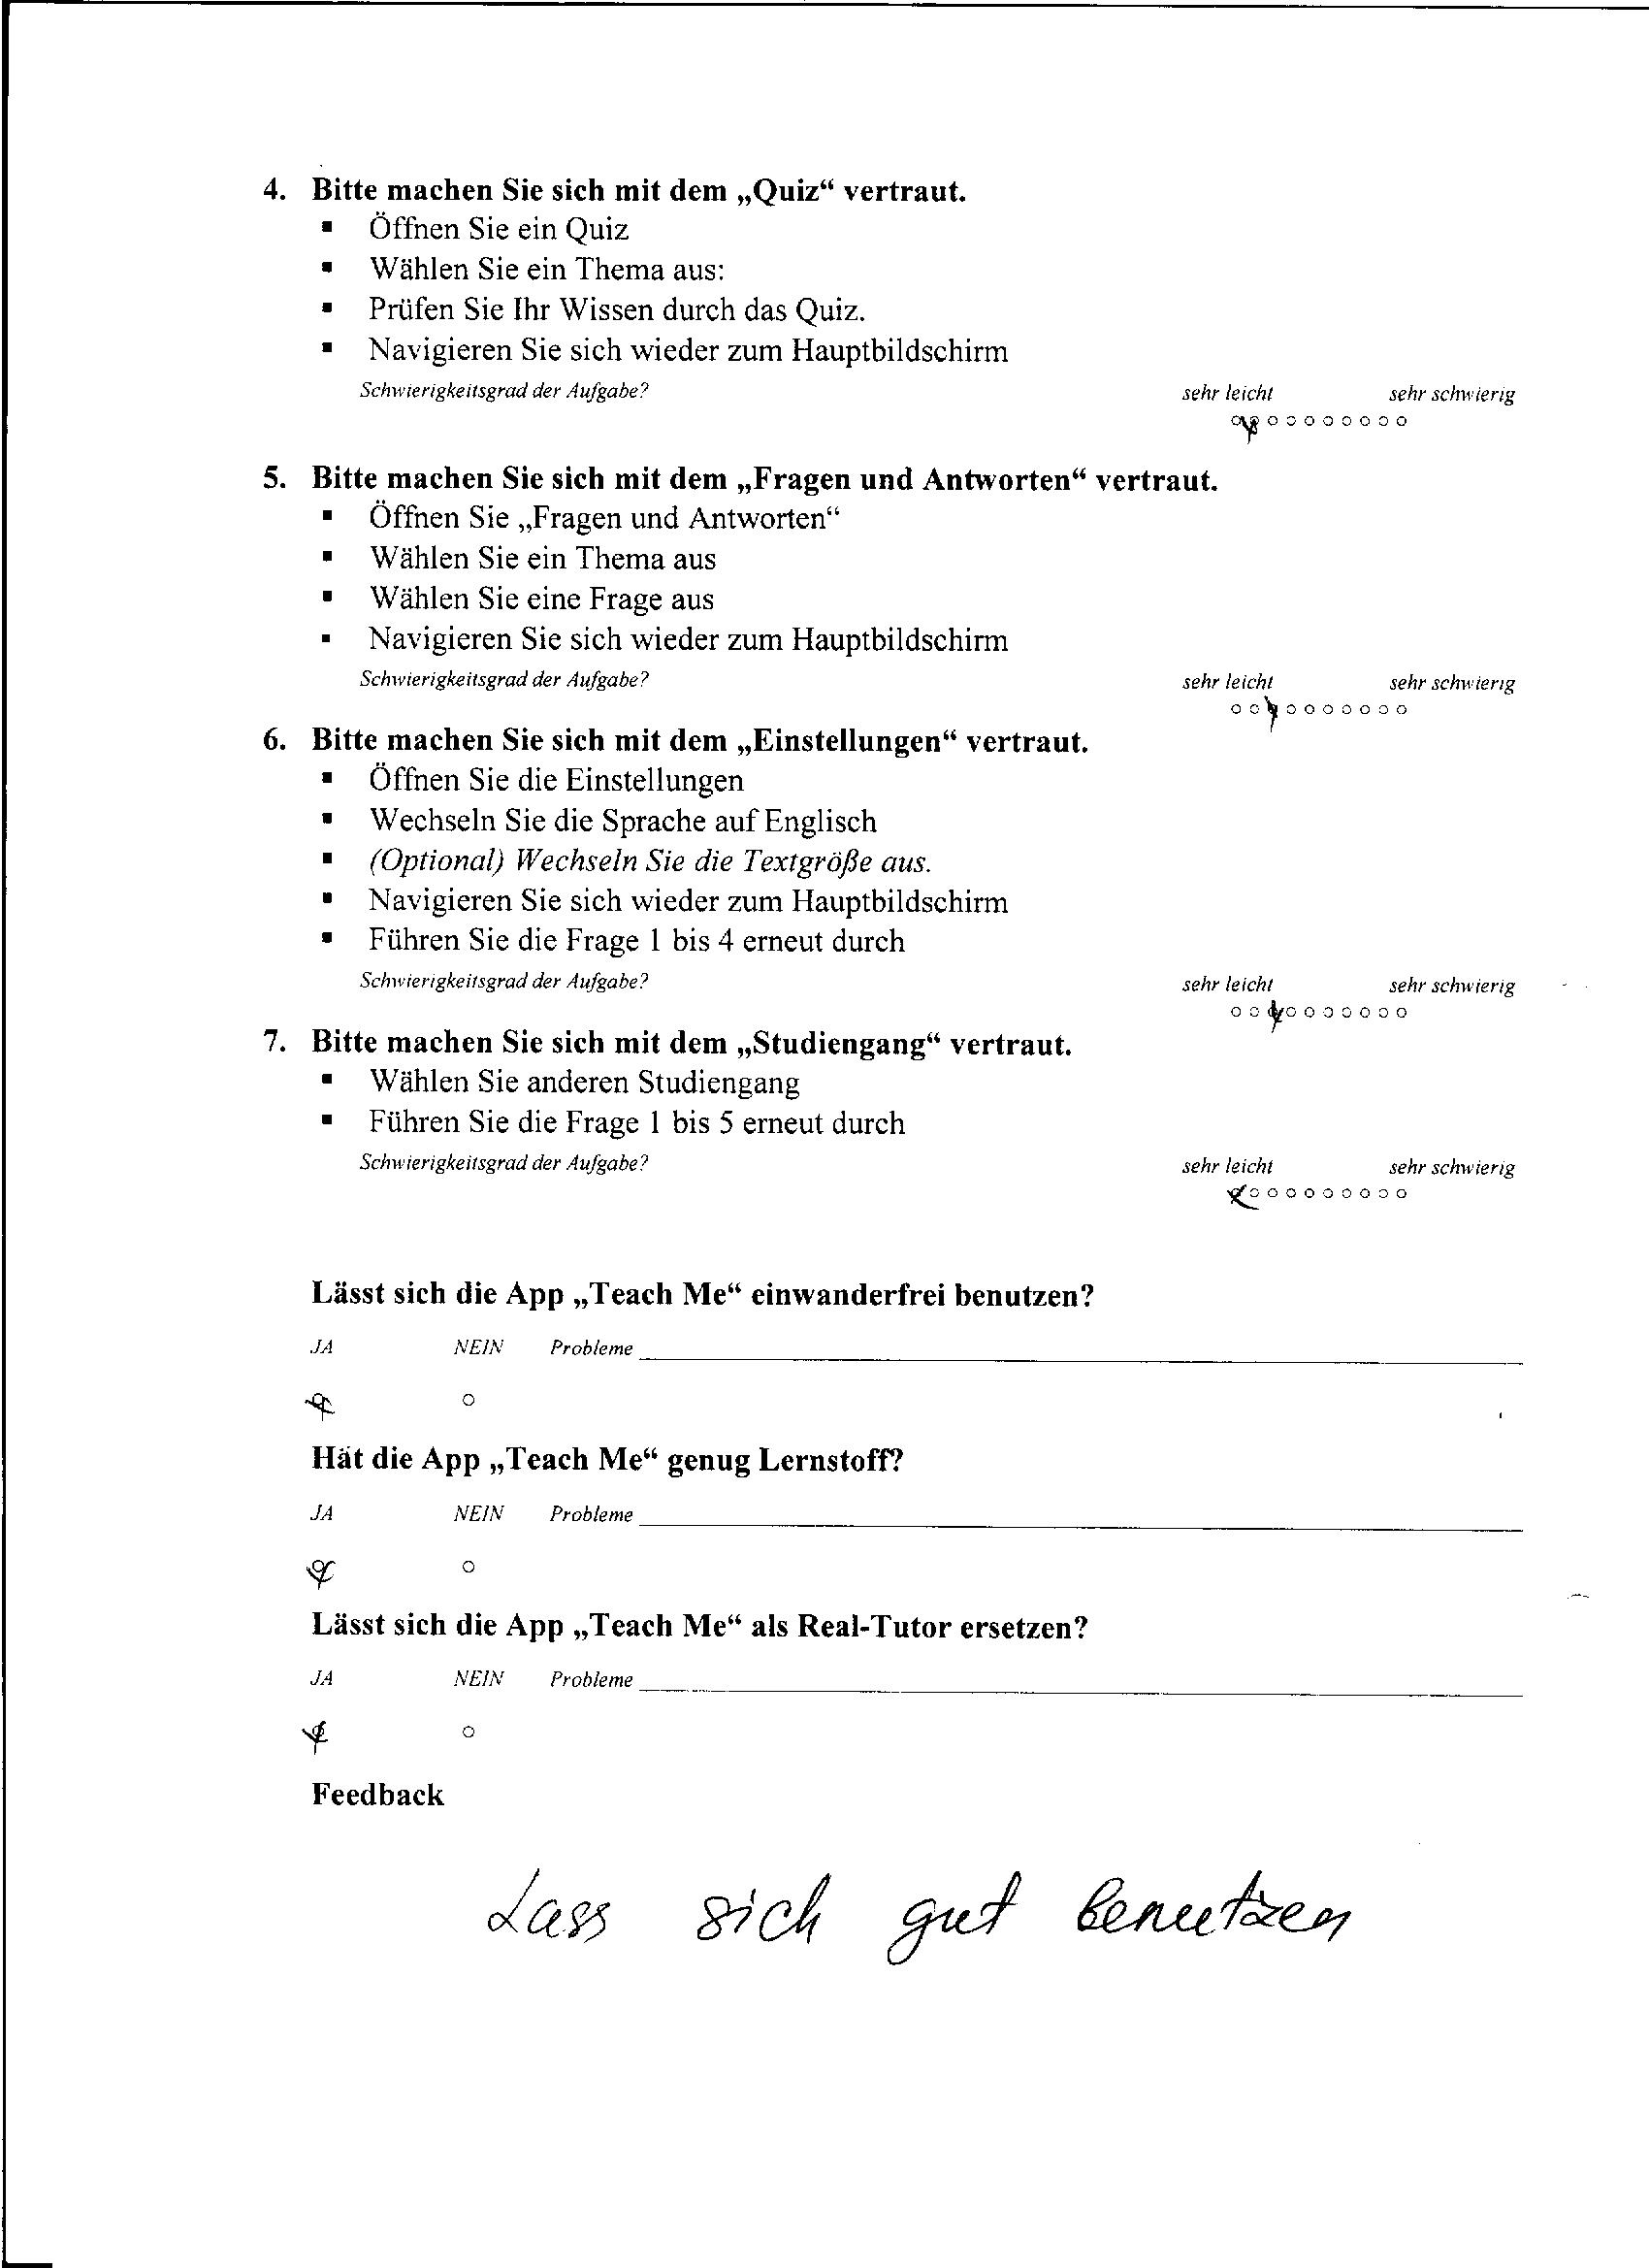 4. Bitte machen Sie sich mit dem „Quiz“ vertraut.
▪ Öffnen Sie ein Quiz
▪ Wählen Sie ein Thema aus:
▪ Prüfen Sie Ihr Wissen durch das Quiz.
▪ Navigieren Sie sich wieder zum Hauptbildschirm
Schwierigkeitsgrad der Aufgabe? sehr leicht sehr schwierig
5. Bitte machen Sie sich mit dem „Fragen und Antworten“ vertraut.
▪ Öffnen Sie „Fragen und Antworten“
▪ Wählen Sie ein Thema aus
▪ Wählen Sie eine Frage aus
▪ Navigieren Sie sich wieder zum Hauptbildschirm
Schwierigkeitsgrad der Aufgabe? sehr leicht sehr schwierig
6. Bitte machen Sie sich mit dem „Einstellungen“ vertraut.
▪ Öffnen Sie die Einstellungen
▪ Wechseln Sie die Sprache auf Englisch
▪ (Optional) Wechseln Sie die Textgröße aus.
▪ Navigieren Sie sich wieder zum Hauptbildschirm
▪ Führen Sie die Frage 1 bis 4 erneut durch
Schwierigkeitsgrad der Aufgabe? sehr leicht sehr schwierig
7. Bitte machen Sie sich mit dem „Studiengang“ vertraut.
▪ Wählen Sie anderen Studiengang
▪ Führen Sie die Frage 1 bis 5 erneut durch
Schwierigkeitsgrad der Aufgabe? sehr leicht sehr schwierig
Lässt sich die App „Teach Me“ einwanderfrei benutzen?
JA NEIN Probleme
Hat die App „Teach Me“ genug Lernstoff?
JA NEIN Probleme
Lässt sich die App „Teach Me“ als Real-Tutor ersetzen?
JA NEIN Probleme
Feedback
Lass sich gut benutzen